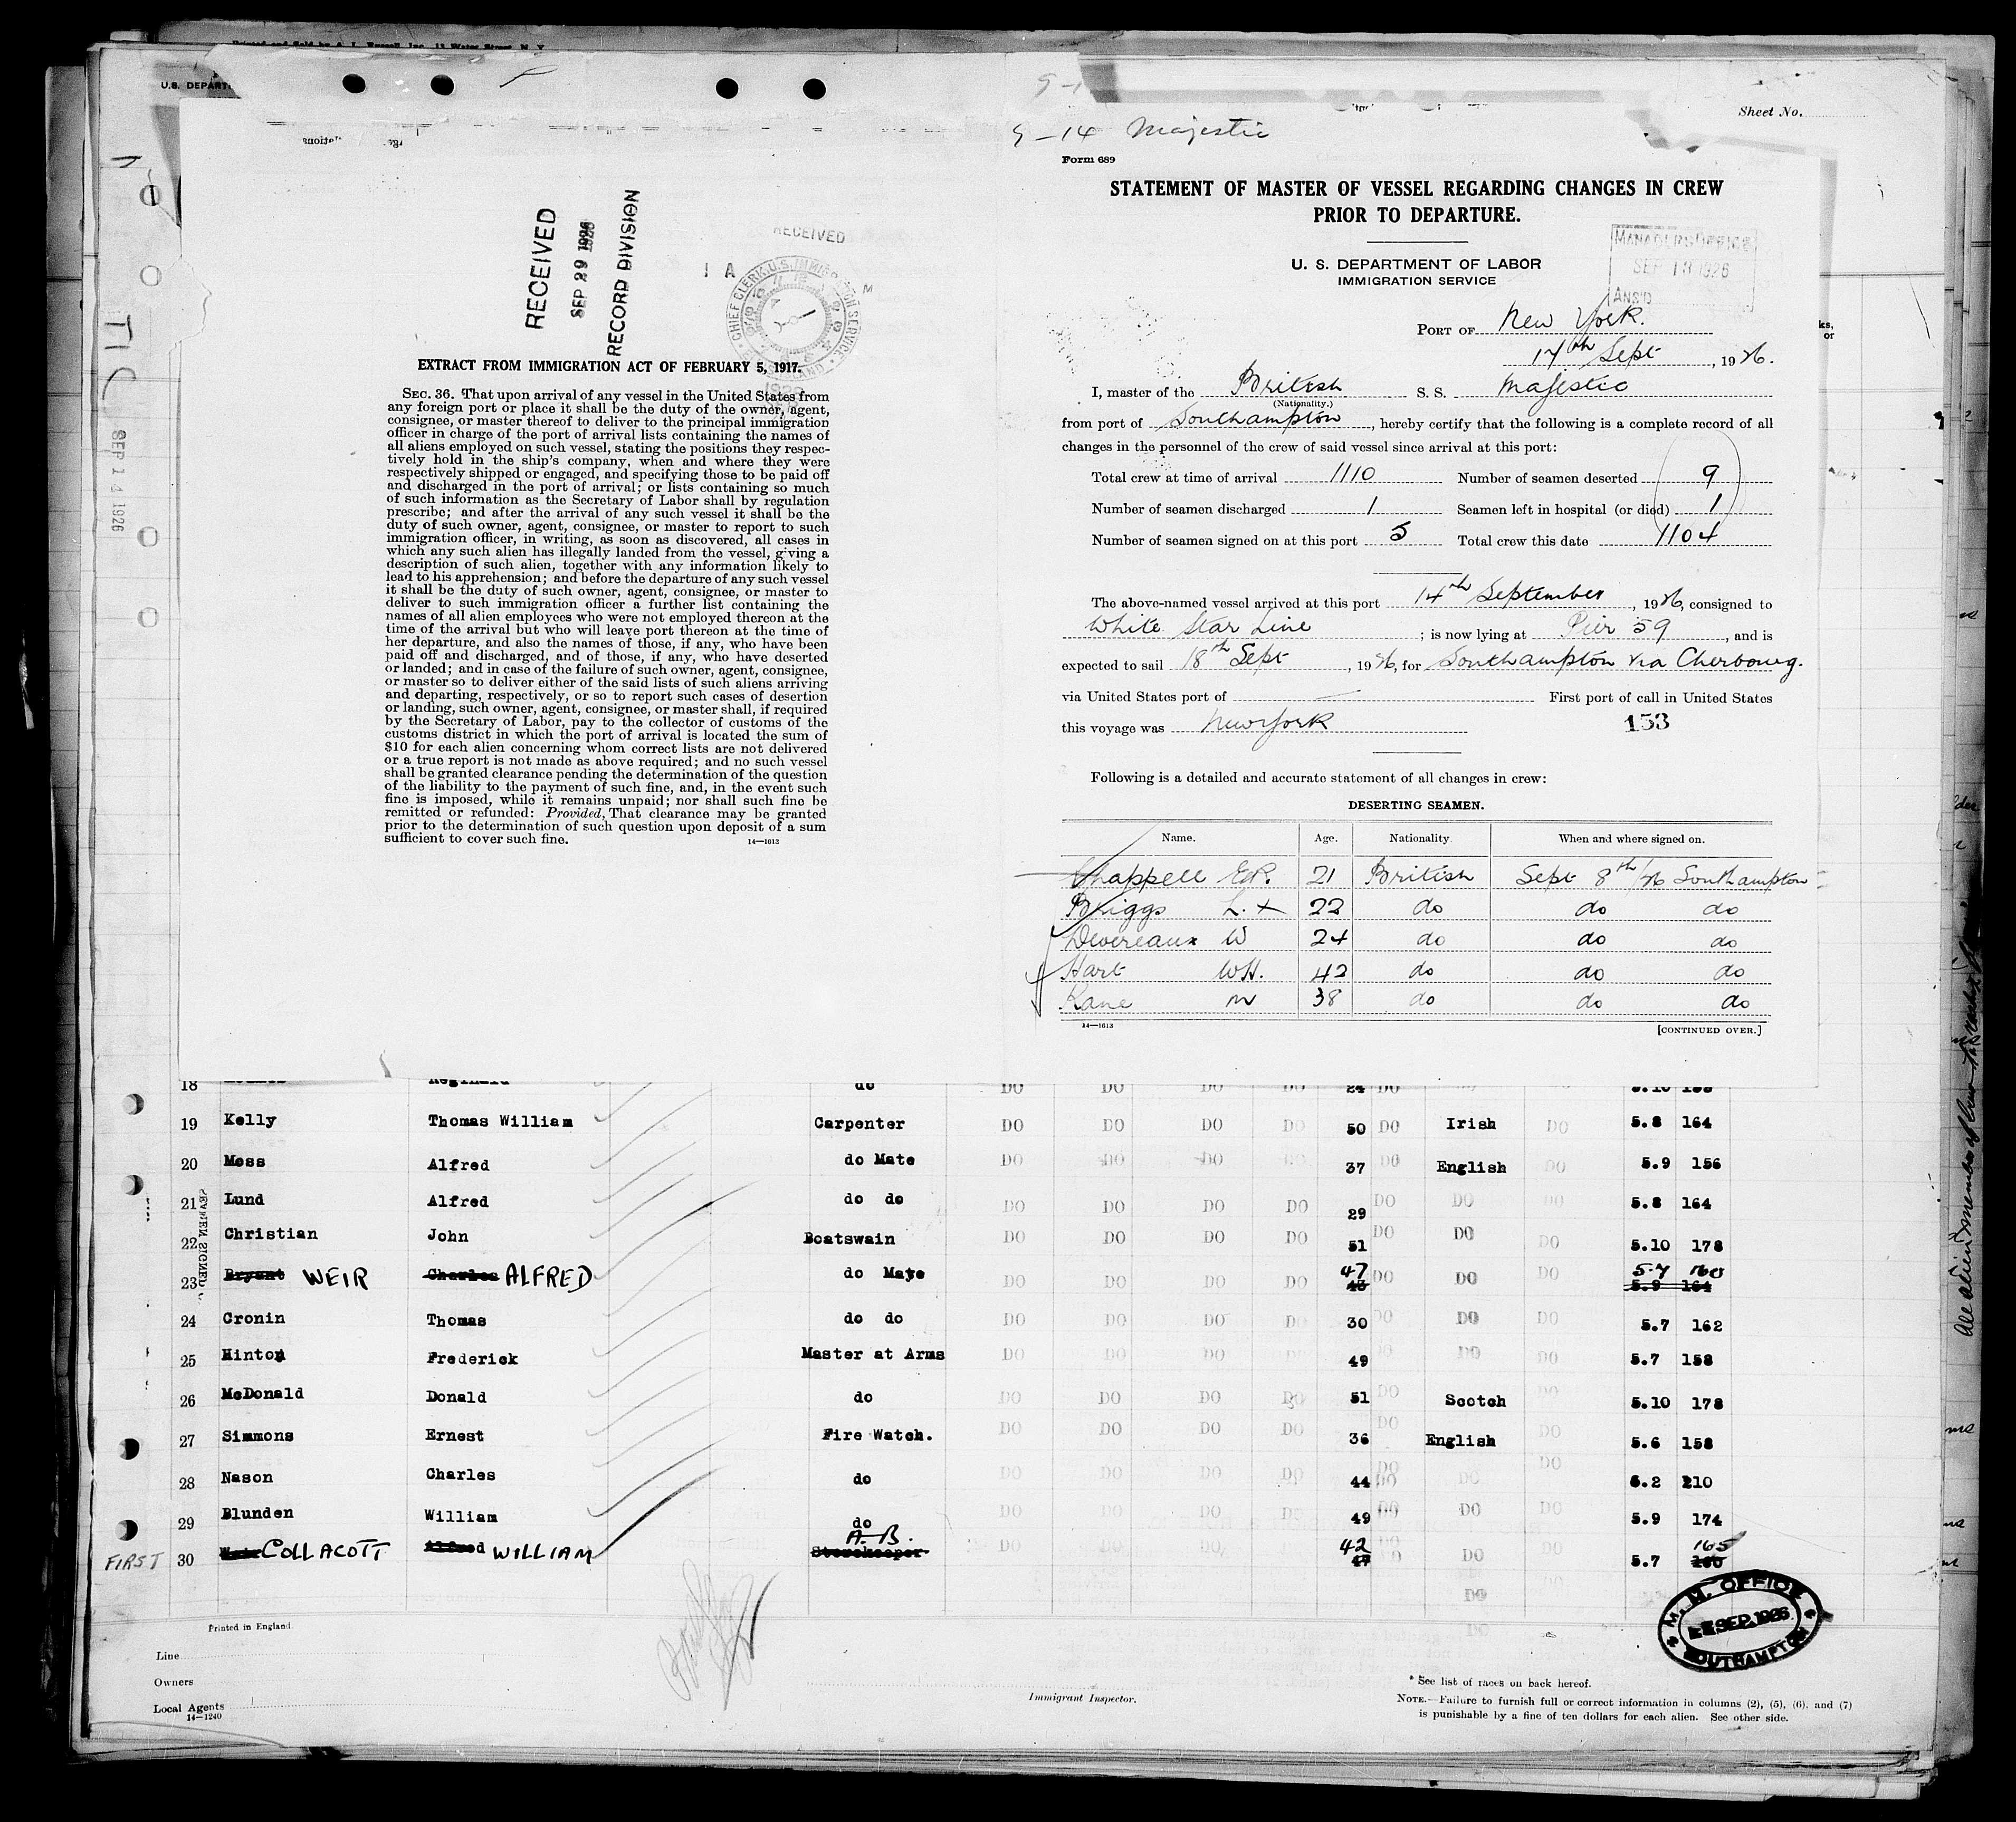 Printed and Sold by A. L. Russell, Inc., 13 Water Street, N. Y.
U.S. DEPART
Sheet No.
9-14 Majestic
Form 689
STATEMENT OF MASTER OF VESSEL REGARDING CHANGES IN CREW
PRIOR TO DEPARTURE.
U. S. DEPARTMENT OF LABOR
IMMIGRATION SERVICE
MANAGERS OFFICE
SEP 18 1926
ANS'D
RECEIVED
SEP 29 1926
RECORD DIVISION
RECEIVED
CHIEF CLERK U.S. IMMIGRATION SERVICE
PORT OF New York.
17th Sept, 1926.
I, master of the British S. S. Majestic
(Nationality.)
from port of Southampton, hereby certify that the following is a complete record of all
changes in the personnel of the crew of said vessel since arrival at this port:
Total crew at time of arrival 1110 Number of seamen deserted 9
Number of seamen discharged 1 Seamen left in hospital (or died) 1
Number of seamen signed on at this port 5 Total crew this date 1104
The above-named vessel arrived at this port 14th September, 1926, consigned to
White Star Line; is now lying at Pier 59, and is
expected to sail 18th Sept, 1926, for Southampton via Cherbourg.
via United States port of First port of call in United States
this voyage was New York 153
Following is a detailed and accurate statement of all changes in crew:
DESERTING SEAMEN.
Name. Age. Nationality When and where signed on.
Chappell E.R. 21 British Sept 8th/26 Southampton
Briggs L. 22 do do do
Devereaux W 24 do do do
Hart W.H. 42 do do do
Kane M 38 do do do
14—1613 [CONTINUED OVER.]
EXTRACT FROM IMMIGRATION ACT OF FEBRUARY 5, 1917.
SEC. 36. That upon arrival of any vessel in the United States from
any foreign port or place it shall be the duty of the owner, agent,
consignee, or master thereof to deliver to the principal immigration
officer in charge of the port of arrival lists containing the names of
all aliens employed on such vessel, stating the positions they respec-
tively hold in the ship's company, when and where they were
respectively shipped or engaged, and specifying those to be paid off
and discharged in the port of arrival; or lists containing so much
of such information as the Secretary of Labor shall by regulation
prescribe; and after the arrival of any such vessel it shall be the
duty of such owner, agent, consignee, or master to report to such
immigration officer, in writing, as soon as discovered, all cases in
which any such alien has illegally landed from the vessel, giving a
description of such alien, together with any information likely to
lead to his apprehension; and before the departure of any such vessel
it shall be the duty of such owner, agent, consignee, or master to
deliver to such immigration officer a further list containing the
names of all alien employees who were not employed thereon at the
time of the arrival but who will leave port thereon at the time of
her departure, and also the names of those, if any, who have been
paid off and discharged, and of those, if any, who have deserted
or landed; and in case of the failure of such owner, agent, consignee,
or master so to deliver either of the said lists of such aliens arriving
and departing, respectively, or so to report such cases of desertion
or landing, such owner, agent, consignee, or master shall, if required
by the Secretary of Labor, pay to the collector of customs of the
customs district in which the port of arrival is located the sum of
$10 for each alien concerning whom correct lists are not delivered
or a true report is not made as above required; and no such vessel
shall be granted clearance pending the determination of the question
of the liability to the payment of such fine, and, in the event such
fine is imposed, while it remains unpaid; nor shall such fine be
remitted or refunded: Provided, That clearance may be granted
prior to the determination of such question upon deposit of a sum
sufficient to cover such fine.
14—1613
SEP 14 1926
18 Reginald do DO DO DO DO 24 DO 5.10
19 Kelly Thomas William Carpenter DO DO DO DO 50 DO Irish DO 5.8 164
20 Moss Alfred do Mate DO DO DO DO 37 DO English DO 5.9 156
21 Lund Alfred do do DO DO DO DO 29 DO DO DO 5.8 164
22 Christian John Boatswain DO DO DO DO 51 DO DO DO 5.10 178
23 Bryant WEIR Charles ALFRED do Mate DO DO DO DO 47 DO DO DO 5.7 160
5.9 164
24 Cronin Thomas do do DO DO DO DO 30 DO DO DO 5.7 162
25 Hinton Frederick Master at Arms DO DO DO DO 49 DO DO DO 5.7 158
26 McDonald Donald do DO DO DO DO 51 DO Scotch DO 5.10 178
27 Simmons Ernest Fire Watch. DO DO DO DO 36 DO English DO 5.6 158
28 Nason Charles do DO DO DO DO 44 DO DO DO 6.2 210
29 Blunden William do DO DO DO DO 49 DO DO DO 5.9 174
A.B.
FIRST 30 Weir COLLACOTT Alfred WILLIAM Storekeeper DO DO DO DO 42 47 DO DO DO 5.7 165 160
DO
SEAMEN SIGNED
M. M. OFFICE
SEP. 1926
SOUTHAMPTON
Printed in England
Line
Owners
Local Agents
14—1240
Immigrant Inspector.
* See list of races on back hereof.
NOTE.—Failure to furnish full or correct information in columns (2), (5), (6), and (7)
is punishable by a fine of ten dollars for each alien. See other side.